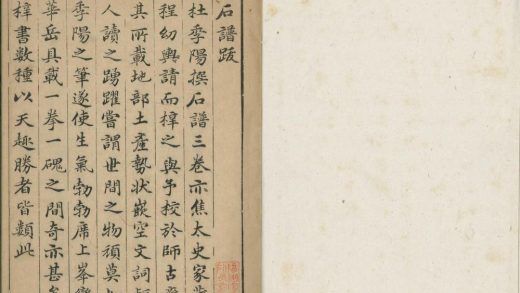 石譜跋
杜季陽撰石譜三卷亦焦太史家
程幼輿請而梓之與予校於師古
其所載地部土產勢狀嵌空文詞
人讀之踴躍嘗謂世間之物頑莫
季陽之筆遂使生氣勃勃席上峯
華岳具載一拳一磈之間奇亦甚
梓書數種以天趣勝者皆類此